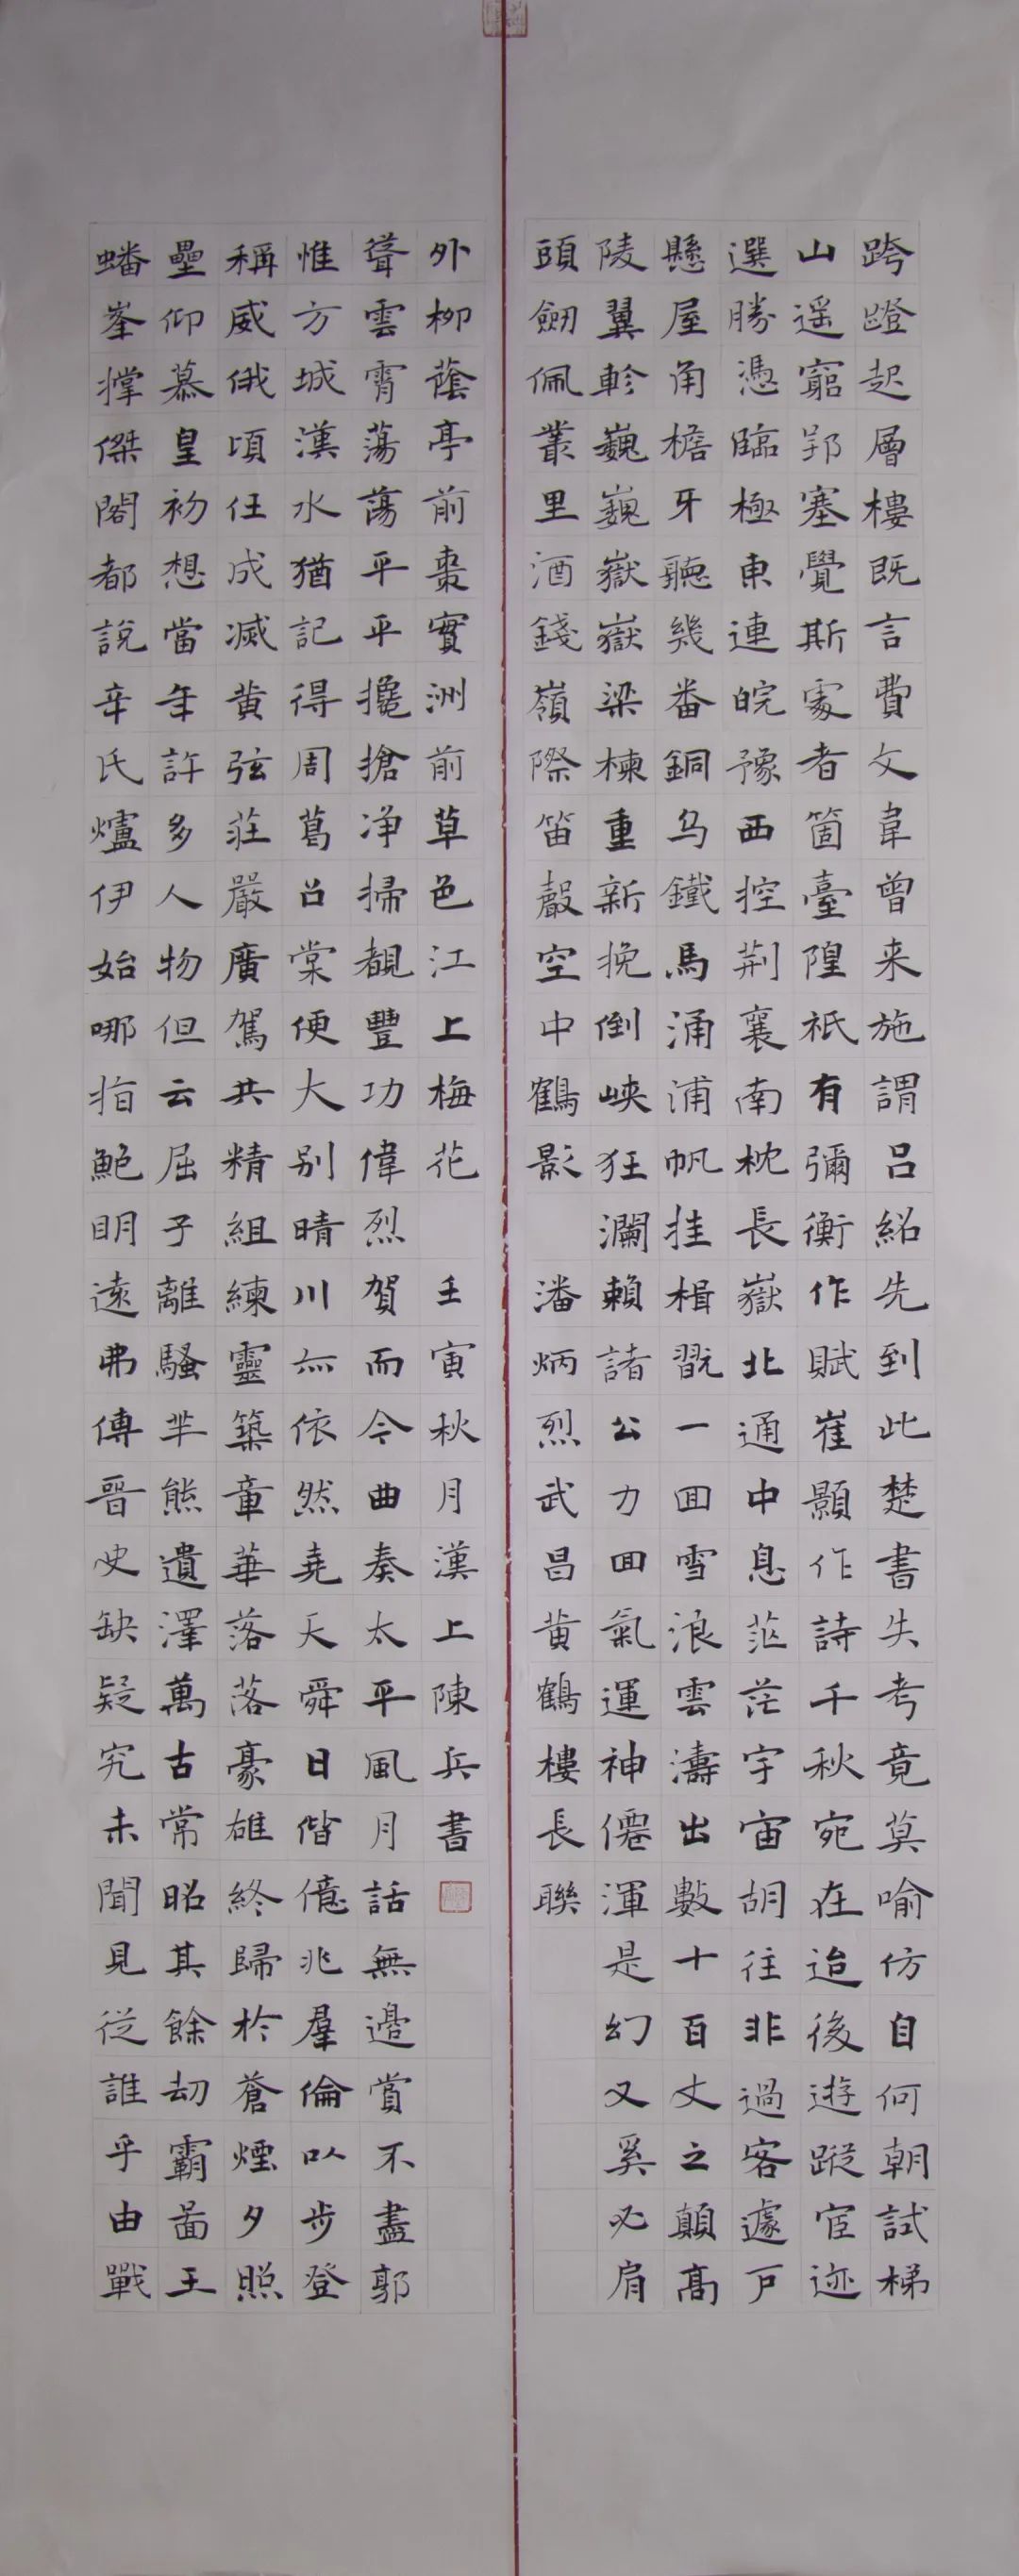 跨蹬起層樓既言費文韋曾来施謂呂絽先到此楚書失考竟莫喻仿自何朝試梯
山遥窮郢塞覺斯處者箇臺隍祇有彌衡作賦崔顥作詩千秋宛在迨後遊蹤宦迹
選勝憑臨極東連皖豫西控荆襄南枕長嶽北通中息茫茫宇宙胡往非過客遽戶
懸屋角檐牙聽幾番銅乌鐵馬涌浦帆挂楫翫一囬雪浪雲濤出數十百丈之顛高
陵翼軫巍巍嶽嶽梁棟重新挽倒峡狂瀾賴諸公力囬氣運神僊渾是幻又奚必肩
頭劒佩叢里酒錢嶺際笛聲空中鶴影 潘炳烈武昌黄鶴樓長聯
蟠峯撑傑閣都說辛氏爐伊始哪指鮑明遠弗傳晉史缺疑究未聞見從誰乎由戰
壘仰慕皇初想當年許多人物但云屈子離騷芈熊遺澤萬古常昭其餘劫霸啚王
稱威俄頃任成滅黄弦莊嚴廣駕共精組練靈築章華落落豪雄終歸於蒼煙夕照
惟方城漢水猶記得周葛召棠便大别晴川亦依然堯天舜日偕億兆羣倫以步登
聳雲霄蕩蕩平平攙搶净掃覩豐功偉烈賀而今曲奏太平風月話無邊賞不盡郭
外柳蔭亭前棗實洲前草色江上梅花 壬寅秋月漢上陳兵書